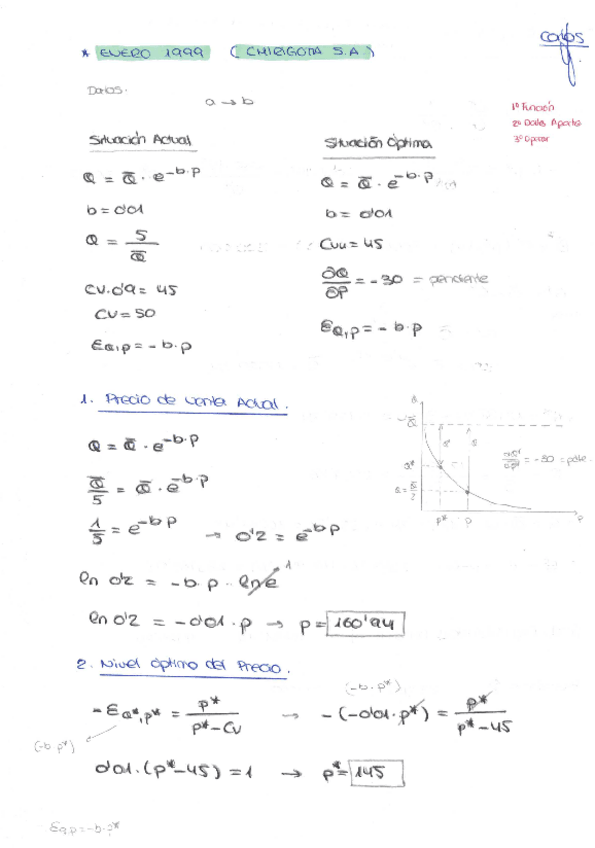 Carlos
* ENERO 1999 (CHIRIGOTA S.A)
Datos.
a → b
1º Función
2º Datos Aparte
3º Operar
Situación Actual
Q = Q̅ · e^-b·p
b = 0'01
Q = 5/Q̅
CV·0'9 = 45
CV = 50
EQ,p = -b·p
Situación Óptima
Q = Q̅ · e^-b·p
b = 0'01
Cvu = 45
∂Q/∂P = -30 = pendiente
EQ,p = -b·p
1. Precio de venta Actual.
Q = Q̅ · e^-b·p
Q̅/5 = Q̅ · e^-b·p
1/5 = e^-b·p → 0'2 = e^-b·p
ln 0'2 = -b·p · ln e 1
ln 0'2 = -0'01·p → p = 160'94
Q̅
Q*
p* p p
= -30 = pdte.
2. Nivel óptimo del Precio.
(-b·p*)
-EQ*,p* = p*/(p*-Cv) → -(-0'01·p*) = p*/(p*-45)
(-b·p*)
0'01·(p*-45) = 1 → p* = 145
Eq,p = -b·p*